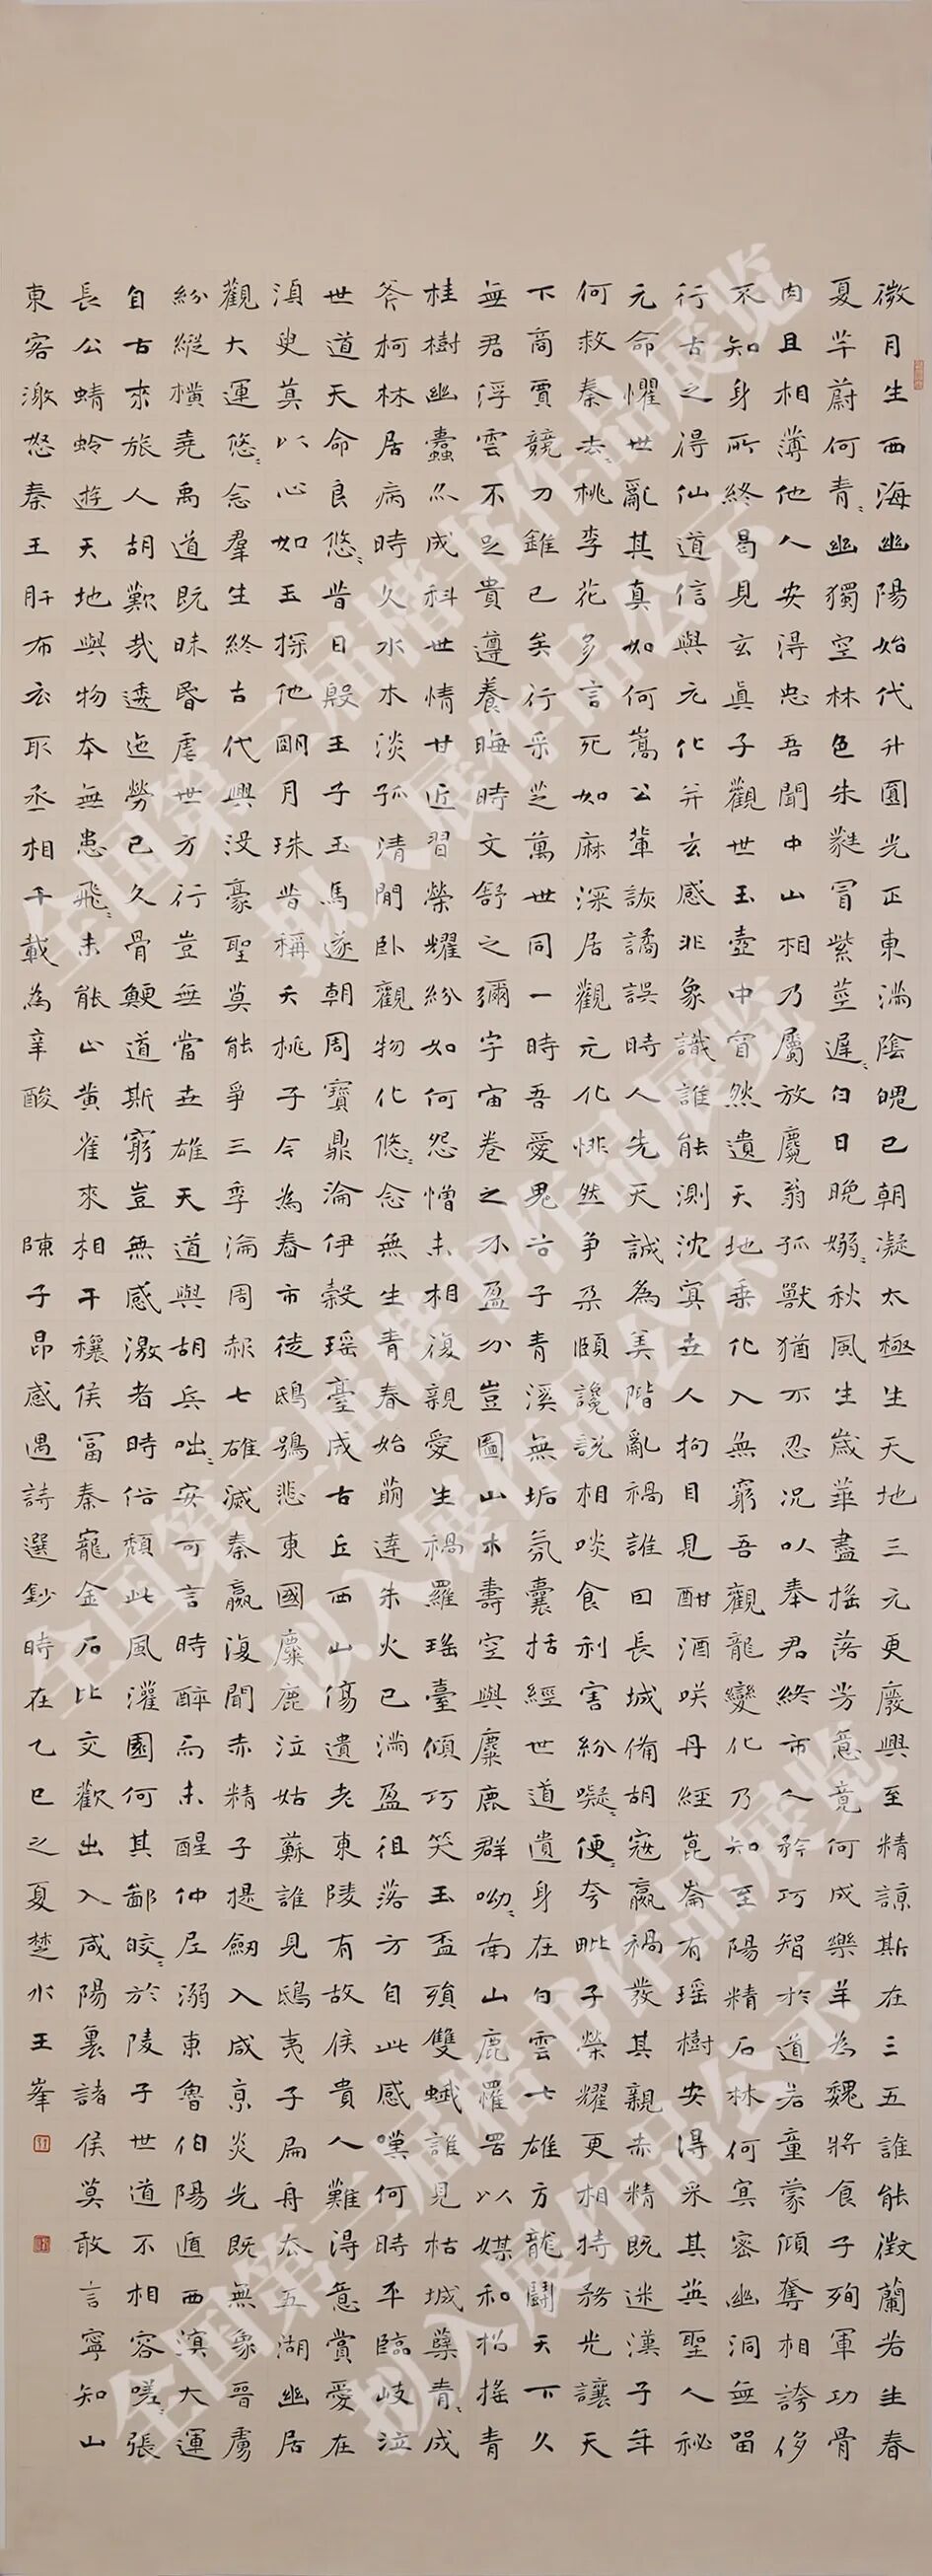 微月生西海幽陽始代升圓光正東滿陰魄已朝凝太極生天地三元更廢興至精諒斯在三五誰能徵蘭若生春
夏芊蔚何青〻幽獨空林色朱蕤冒紫莖遲〻白日晚嫋〻秋風生歲華盡搖落芳意竟何成樂羊為魏將食子殉軍功骨
肉且相薄他人安得忠吾聞中山相乃屬放麑翁孤獸猶不忍況以奉君終市人矜巧智於道若童蒙傾奪相誇侈
不知身所終曷見玄真子觀世玉壺中窅然遺天地乘化入無窮吾觀龍變化乃知至陽精石林何冥密幽洞無留
行古之得仙道信與元化并玄感非象識誰能測沈冥世人拘目見酣酒咲丹經崑崙有瑤樹安得采其英聖人秘
元命懼世亂其真如何嵩公輩詼譎誤時人先天誠為美階亂禍誰因長城備胡寇嬴禍發其親赤精既迷漢子年
何救秦去〻桃李花多言死如麻深居觀元化悱然争朵頤讒說相啖食利害紛㘈〻便〻夸毗子榮耀更相持務光讓天
下商賈競刀錐已矣行采芝萬世同一時吾愛鬼谷子青溪無垢氛囊括經世道遺身在白雲七雄方龍鬭天下久
無君浮雲不足貴遵養晦時文舒之彌宇宙卷之不盈分豈圖山木壽空與麋鹿群呦〻南山鹿罹罟以媒和招搖青
桂樹幽蠹亦成科世情甘近習榮耀紛如何怨憎未相復親愛生禍羅瑤臺傾巧笑玉盃殞雙蛾誰見枯城蘗青〻成
斧柯林居病時久水木淡孤清閒臥觀物化悠〻念無生青春始萌達朱火已滿盈徂落方自此感嘆何時平臨岐泣
世道天命良悠〻昔日殷王子玉馬遂朝周寶鼎淪伊穀瑤臺成古丘西山傷遺老東陵有故侯貴人難得意賞愛在
須臾莫以心如玉探他明月珠昔稱夭桃子今為舂市徒鴟鴞悲東國麋鹿泣姑蘇誰見鴟夷子扁舟去五湖幽居
觀大運悠〻念羣生終古代興沒豪聖莫能爭三季淪周赧七雄滅秦嬴復聞赤精子提劍入咸京炎光既無象晉虜
紛縱橫堯禹道既昧昏虐世方行豈無當世雄天道與胡兵咄〻安可言時醉而未醒仲尼溺東魯伯陽遁西溟大運
自古來旅人胡歎哉逶迤勞已久骨鯁道斯窮豈無感激者時俗頹此風灌園何其鄙皎〻於陵子世道不相容嗟〻張
長公蜻蛉遊天地與物本無患飛〻未能止黃雀來相干穰侯富秦寵金石比交歡出入咸陽裏諸侯莫敢言寧知山
東客激怒秦王肝布衣取丞相千載為辛酸 陳子昂感遇詩選鈔時在乙巳之夏楚水王峯
全国第三届楷书作品展览
拟入展作品公示
全国第三届楷书作品展览
拟入展作品公示
全国第三届楷书作品展览
拟入展作品公示